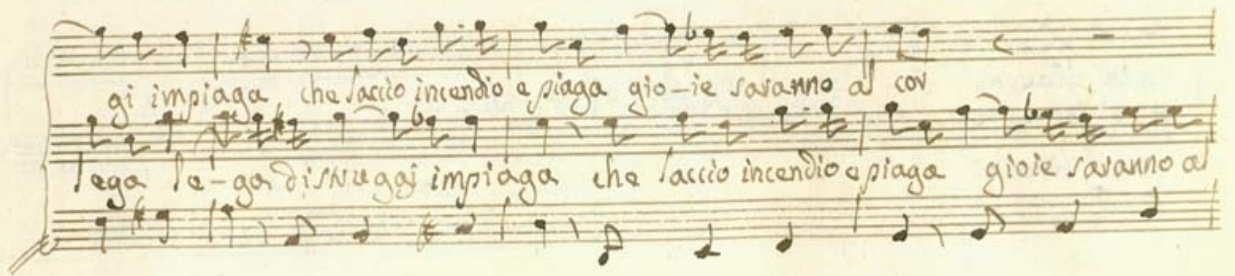 gi impiaga che laccio incendio e piaga gio-ie saranno al cor
lega le-ga distruggi impiaga che laccio incendio e piaga gioie saranno al